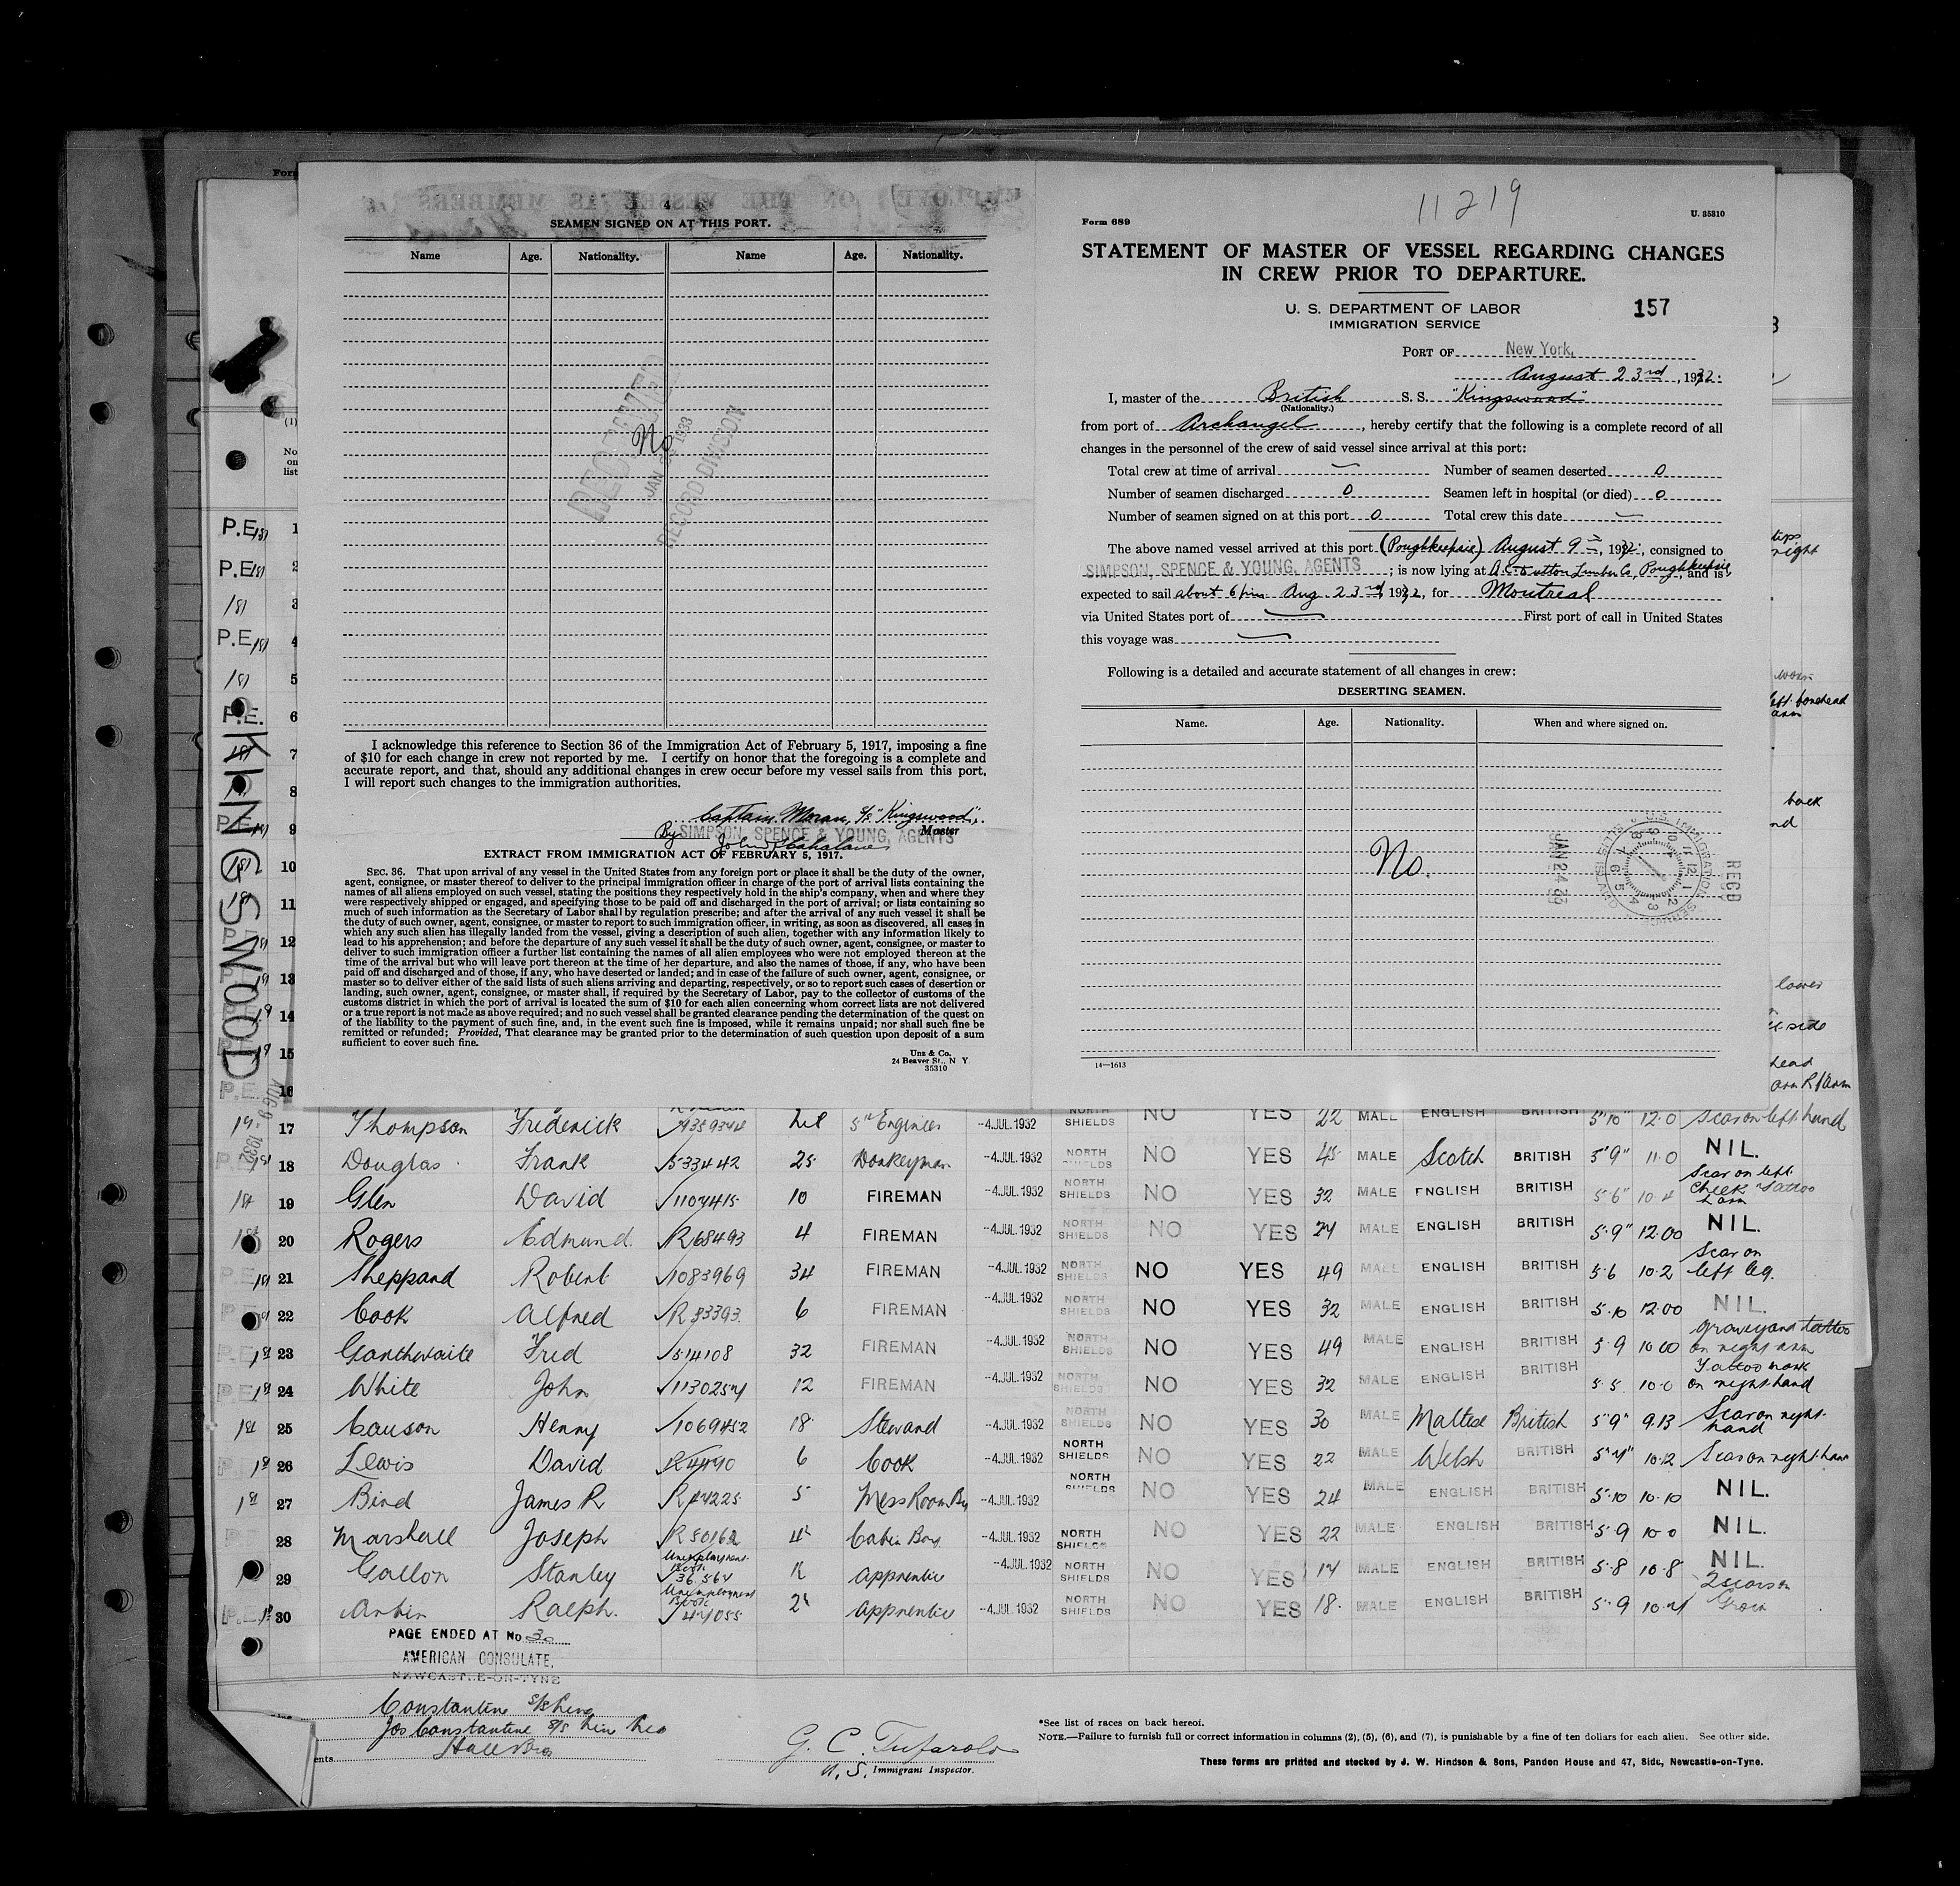 4
SEAMEN SIGNED ON AT THIS PORT.
Name Age. Nationality. Name Age. Nationality.
RECEIVED
No
JAN 1933
RECORD DIVISION
I acknowledge this reference to Section 36 of the Immigration Act of February 5, 1917, imposing a fine
of $10 for each change in crew not reported by me. I certify on honor that the foregoing is a complete and
accurate report, and that, should any additional changes in crew occur before my vessel sails from this port,
I will report such changes to the immigration authorities.
Captain Moran, S/S "Kingswood",
Master
By SIMPSON, SPENCE & YOUNG, AGENTS
EXTRACT FROM IMMIGRATION ACT OF FEBRUARY 5, 1917.
SEC. 36. That upon arrival of any vessel in the United States from any foreign port or place it shall be the duty of the owner,
agent, consignee, or master thereof to deliver to the principal immigration officer in charge of the port of arrival lists containing the
names of all aliens employed on such vessel, stating the positions they respectively hold in the ship's company, when and where they
were respectively shipped or engaged, and specifying those to be paid off and discharged in the port of arrival; or lists containing so
much of such information as the Secretary of Labor shall by regulation prescribe; and after the arrival of any such vessel it shall be
the duty of such owner, agent, consignee, or master to report to such immigration officer, in writing, as soon as discovered, all cases in
which any such alien has illegally landed from the vessel, giving a description of such alien, together with any information likely to
lead to his apprehension; and before the departure of any such vessel it shall be the duty of such owner, agent, consignee, or master to
deliver to such immigration officer a further list containing the names of all alien employees who were not employed thereon at the
time of the arrival but who will leave port thereon at the time of her departure, and also the names of those, if any, who have been
paid off and discharged and of those, if any, who have deserted or landed; and in case of the failure of such owner, agent, consignee, or
master so to deliver either of the said lists of such aliens arriving and departing, respectively, or so to report such cases of desertion or
landing, such owner, agent, consignee, or master shall, if required by the Secretary of Labor, pay to the collector of customs of the
customs district in which the port of arrival is located the sum of $10 for each alien concerning whom correct lists are not delivered
or a true report is not made as above required; and no such vessel shall be granted clearance pending the determination of the quest on
of the liability to the payment of such fine, and, in the event such fine is imposed, while it remains unpaid; nor shall such fine be
remitted or refunded; Provided, That clearance may be granted prior to the determination of such question upon deposit of a sum
sufficient to cover such fine.
Unz & Co.
24 Beaver St., N Y
35310
11219
Form 689 U. 35310
STATEMENT OF MASTER OF VESSEL REGARDING CHANGES
IN CREW PRIOR TO DEPARTURE.
U. S. DEPARTMENT OF LABOR
157
IMMIGRATION SERVICE
PORT OF New York,
August 23rd, 1932.
I, master of the British S. S. "Kingswood"
(Nationality.)
from port of Archangel, hereby certify that the following is a complete record of all
changes in the personnel of the crew of said vessel since arrival at this port:
Total crew at time of arrival Number of seamen deserted 0
Number of seamen discharged 0 Seamen left in hospital (or died) 0
Number of seamen signed on at this port 0 Total crew this date
The above named vessel arrived at this port (Poughkeepsie) August 9th, 1932, consigned to
SIMPSON, SPENCE & YOUNG, AGENTS; is now lying at A.C. Dutton Lumber Co, Poughkeepsie, and is
expected to sail about 6 pm Aug. 23rd, 1932, for Montreal
via United States port of First port of call in United States
this voyage was
Following is a detailed and accurate statement of all changes in crew:
DESERTING SEAMEN.
Name. Age. Nationality. When and where signed on.
No.
JAN 24 33
REC'D
14—1613
KINGSWOOD
AUG 9 - 1932
17 Thompson Frederick 5th Engineer -4.JUL.1932 NORTH SHIELDS NO YES 22 MALE ENGLISH BRITISH 5'10" 12.0 Scar on left hand
18 Douglas Frank 533442 25 Donkeyman -4.JUL.1932 NORTH SHIELDS NO YES 45 MALE Scotch BRITISH 5'9" 11.0 NIL.
19 Glen David 1107415 10 FIREMAN -4.JUL.1932 NORTH SHIELDS NO YES 32 MALE ENGLISH BRITISH 5'6" 10.4 Scar on left cheek Tattoo L arm
20 Rogers Edmund. R68493 4 FIREMAN -4.JUL.1932 NORTH SHIELDS NO YES 24 MALE ENGLISH BRITISH 5.9" 12.00 NIL.
21 Sheppard Robert 1083969 34 FIREMAN -4.JUL.1932 NORTH SHIELDS NO YES 49 MALE ENGLISH BRITISH 5.6 10.2 Scar on left leg.
22 Cook Alfred R 83393 6 FIREMAN -4.JUL.1932 NORTH SHIELDS NO YES 32 MALE ENGLISH BRITISH 5.10 12.00 NIL.
23 Garthwaite Fred 514108 32 FIREMAN -4.JUL.1932 NORTH SHIELDS NO YES 49 MALE ENGLISH BRITISH 5.9 10 00 Graveyard tattoo on right arm
24 White John 1130257 12 FIREMAN -4.JUL.1932 NORTH SHIELDS NO YES 32 MALE ENGLISH BRITISH 5.5. 10.0 Tattoo mark on right hand
25 Causon Henry 1069452 18 Steward -4.JUL.1932 NORTH SHIELDS NO YES 30 MALE Maltese British 5"9" 9.13 Scar on right hand
26 Lewis David 6 Cook -4.JUL.1932 NORTH SHIELDS NO YES 22 MALE Welsh BRITISH 10.12 Scar on right hand
27 Bird James R 5 Mess Room Boy -4.JUL.1932 NORTH SHIELDS NO YES 24 MALE ENGLISH BRITISH 5.10 10.10 NIL.
28 Marshall Joseph R 50162 4 Cabin Boy -4.JUL.1932 NORTH SHIELDS NO YES 22 MALE ENGLISH BRITISH 5.9 10.0 NIL.
29 Gallon Stanley Unemployment Book 36564 Apprentice -4.JUL.1932 NORTH SHIELDS NO YES 17 MALE ENGLISH BRITISH 5.8 10.8 NIL.
30 Ralph. Unemployment Book 47055 2 Apprentice -4.JUL.1932 NORTH SHIELDS NO YES 18. MALE ENGLISH BRITISH 5.9 2 scars on Groin
PAGE ENDED AT No 30
AMERICAN CONSULATE,
NEWCASTLE-ON-TYNE
Constantine
Jos Constantine
ents
G. C. Tufarolo
U. S. Immigrant Inspector.
*See list of races on back hereof.
NOTE.—Failure to furnish full or correct information in columns (2), (5), (6), and (7), is punishable by a fine of ten dollars for each alien. See other side.
These forms are printed and stocked by J. W. Hindson & Sons, Pandon House and 47, Side, Newcastle-on-Tyne.